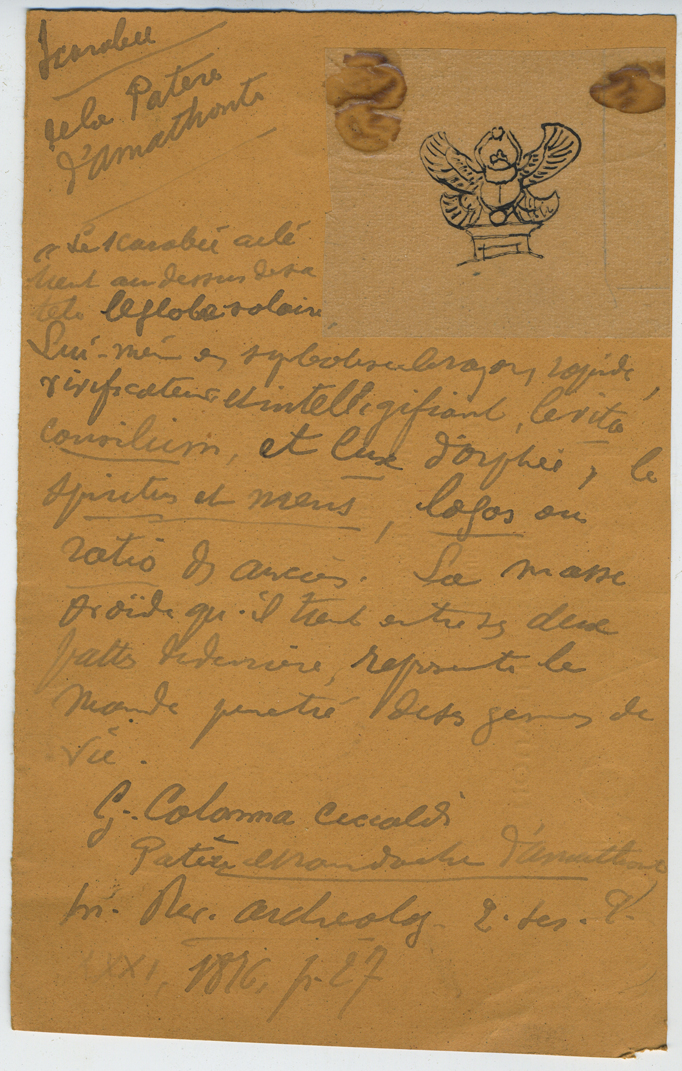 Scarabée
de la Patère
d'Amathonte
"Le scarabée ailé
tient au dessus de sa
tête le globe solaire
Lui-même en symbolise le rayon rapide,
vivificateur et intelligifiant, le vita
consilium, et lux d'Orphée, le
spiritus et mens, logos ou
ratio des anciens. La masse
ovoïde qu'il tient entre ses deux
pattes de derrière, représente le
Monde penetré de ses germes de
vie.
G. Colonna Ceccaldi
Patère d'Amathonte
in. Rev. archeolog. 2. ses. T.
XXXI, 1876, p. 27